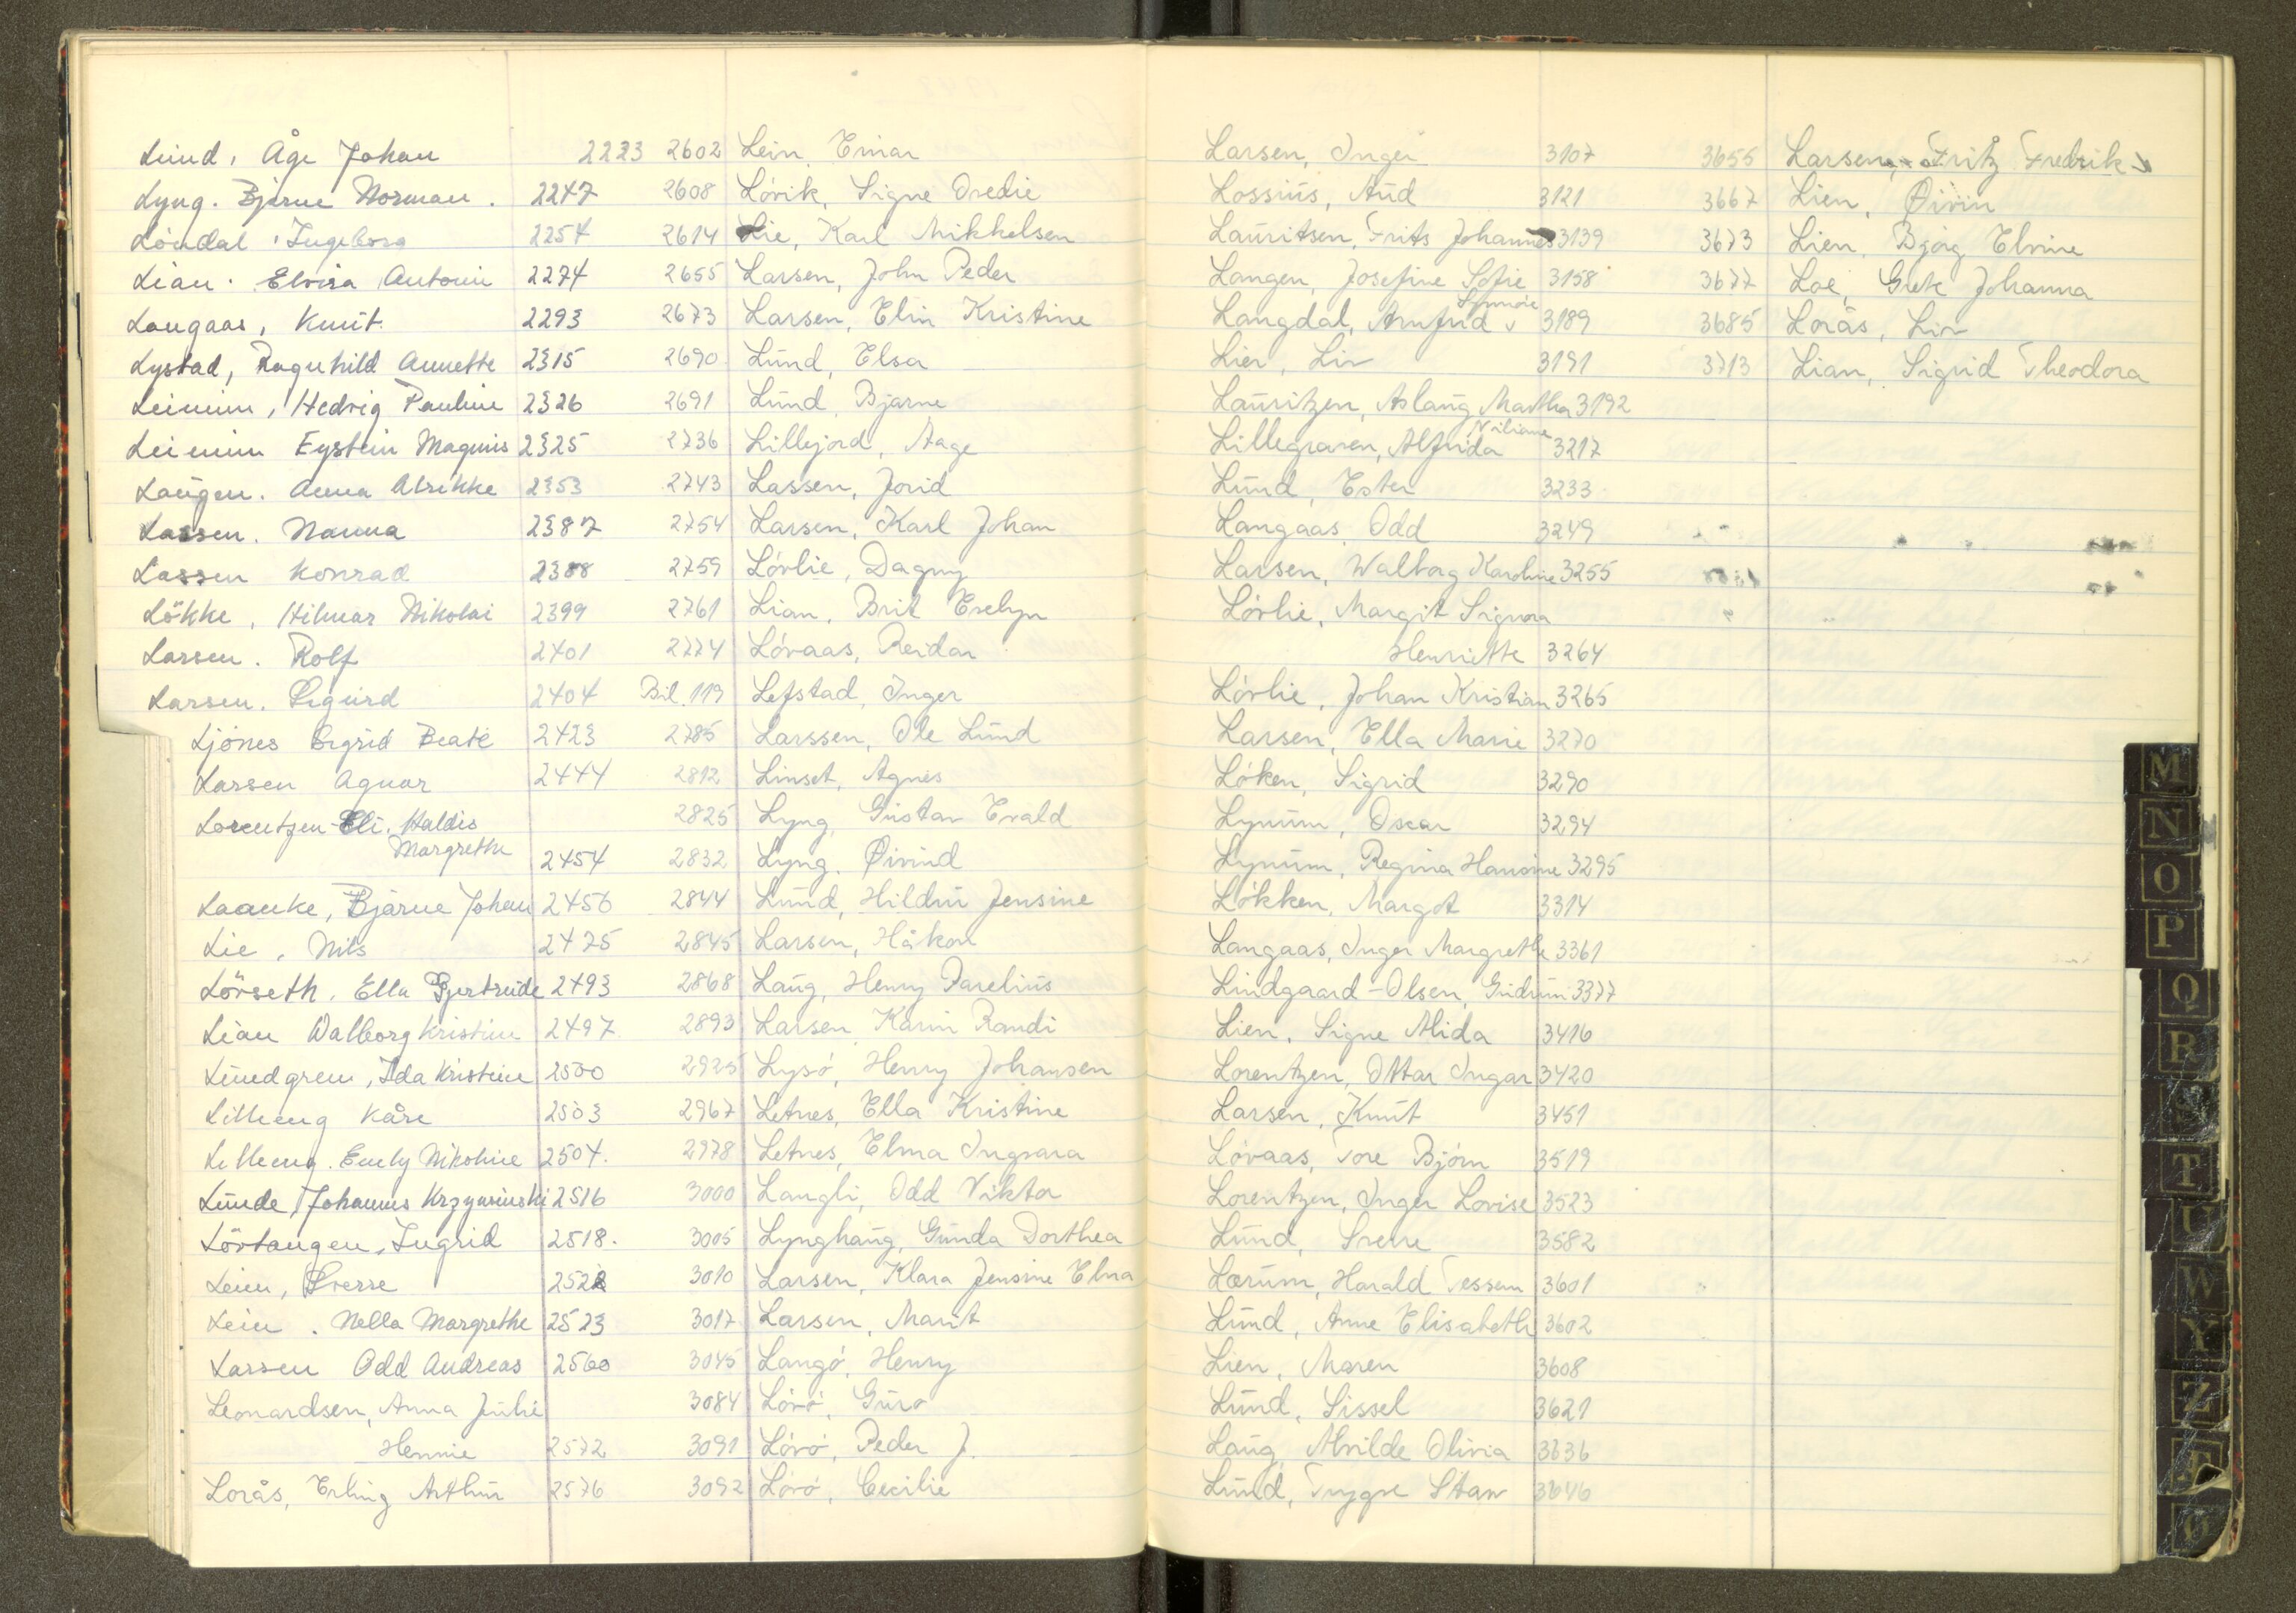 Lund, Åge Johan 2223
Lyng. Bjarne Norman. 2247
Löndal, Ingeborg 2254
Lian. Elvira Antonie 2274
Langaas, Knut. 2293
Lystad, Ragnhild Annette 2315
Leinum, Hedvig Pauline 2326
Leinum Eystein Magnus 2325
Langen. Anna Alrikke 2353
Lassen. Nanna 2387
Lassen Konrad 2388
Lökke, Hilmar Nikolai 2399
Larsen. Rolf 2401
Larsen. Sigurd 2404
Ljönes Sigrid Beate 2423
Larsen Agnar 2444
Lorentzen Eli. Haldis
Margrethe 2454
Laanke, Bjarne Johan 2456
Lie, Nils 2475
Lörseth. Ella Gjertrude 2493
Lian Walborg Kristine 2497
Lundgren, Ida Kristine 2500
Lilleeng Kåre 2503
Lilleeng. Emely Nikoline 2504.
Lunde, Johannes 2516
Lövtangen, Ingrid 2518.
Lein, Sverre 2522
Lein. Nella Margrethe 2523
Larsen Odd Andreas 2560
Leonardsen, Anna Julie
Hennie 2572
Lorås, Erling Arthur 2576
2602 Lein, Einar
2608 Lövik, Signe Oredie
2614 Lie, Karl Mikkelsen
2655 Larsen, John Peder
2673 Larsen, Elin Kristine
2690 Lund, Elsa
2691 Lund, Bjarne
2736 Lillejord, Aage
2743 Lassen, Jorid
2754 Larsen, Karl Johan
2759 Lövlie, Dagny
2761 Lian, Brit Evelyn
2774 Lövaas, Reidar
Bil. 119 Lefstad, Inger
2785 Larssen, Ole Lund
2812 Linset, Agnes
2825 Lyng, Gustav Evald
2832 Lyng. Øivind
2844 Lund, Hildur Jensine
2845 Larsen, Håkon
2868 Laug, Henry Parelius
2893 Larsen, Karin Randi
2925 Lysö, Henry Johansen
2967 Letnes, Ella Kristine
2978 Letnes, Elma Ingvara
3000 Langli, Odd Viktor
3005 Lynghaug, Gunda Dorthea
3010 Larsen, Klara Jensine Elna
3017 Larsen, Marit
3045 Langö, Henry
3084 Lörö, Guro
3091 Lörö, Peder J.
3092 Lörö, Cecilie
Larsen, Inger 3107
Lossius, Aud 3121
Lauritsen, Frits Johannes 3139
Langen, Josefine Sofie 3158
Synnöve
Langdal, Arnfrid v 3189
Lier, Liv 3191
Lauritzen, Aslaug Martha 3192
Viliane
Lillegraven, Alfrida 3217
Lund, Ester 3233
Langaas, Odd 3249
Larsen, Walborg Karoline 3255
Lövlie, Margit Signora
Henriette 3264
Lövlie, Johan Kristian 3265
Larsen, Ella Marie 3270
Löken, Sigrid 3290
Lynum, Oscar 3294
Lynum, Regina Hansine 3295
Lökken, Margot 3314
Langaas, Inger Margrethe 3361
Lindgaard-Olsen, Gudrun 3377
Lien, Signe Alida 3416
Lorentzen, Ottar Ingar 3420
Larsen, Knut 3451
Lövaas, Tore Björn 3519
Lorentzen, Inger Lovise 3523
Lund, Sverre 3582
Lorum, Harald Tessem 3601
Lund, Anne Elisabeth 3602
Lien, Maren 3608
Lund, Sissel 3621
Laug, Alvilde Olivia 3636
Lund, Trygve Stav 3646
3655 Larsen, Fritz Fredrik
3667 Lien, Øivin
3673 Lien, Bjorg Elvine
3677 Loe, Grete Johanna
3685 Lorås, Liv
3713 Lian, Sigrid Theodora
M
N
O
P
Q
R
S
T
U
W
Y
Z
Æ
Ø